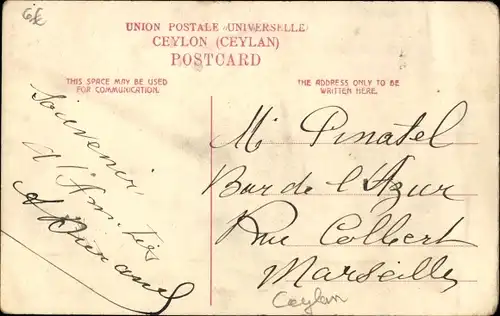 UNION POSTALE UNIVERSELLE
CEYLON (CEYLAN)
POSTCARD
THIS SPACE MAY BE USED
FOR COMMUNICATION.
THE ADDRESS ONLY TO BE
WRITTEN HERE.
Souvenir
d'Amitiés
Mr Pinatel
Bar de l'Azur
Rue Colbert
Marseille
Ceylan